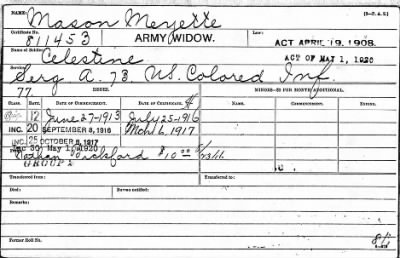 NAME: Mason Meyette
Certificate No. 811453 ARMY WIDOW. Law: ACT APRIL 19, 1908.
Name of Soldier: Celestine ACT OF MAY 1, 1920
Service: Serg A. 73 US. Colored Inf.
77. ISSUE. MINORS—$2 PER MONTH ADDITIONAL.
CLASS. RATE. DATE OF COMMENCEMENT. DATE OF CERTIFICATE. DATE OF COMMENCEMENT.
12 June 27-1913 July 25-1916
INC. 20 SEPTEMBER 8, 1916 Mch 6, 1917
INC. 25 OCTOBER 6, 1917
Inc 30 May 1, 1920
Nathan Bickford $10.00
GROUP 2
Transferred from: Transferred to:
Died: Bureau notified:
Remarks:
Former Roll No.